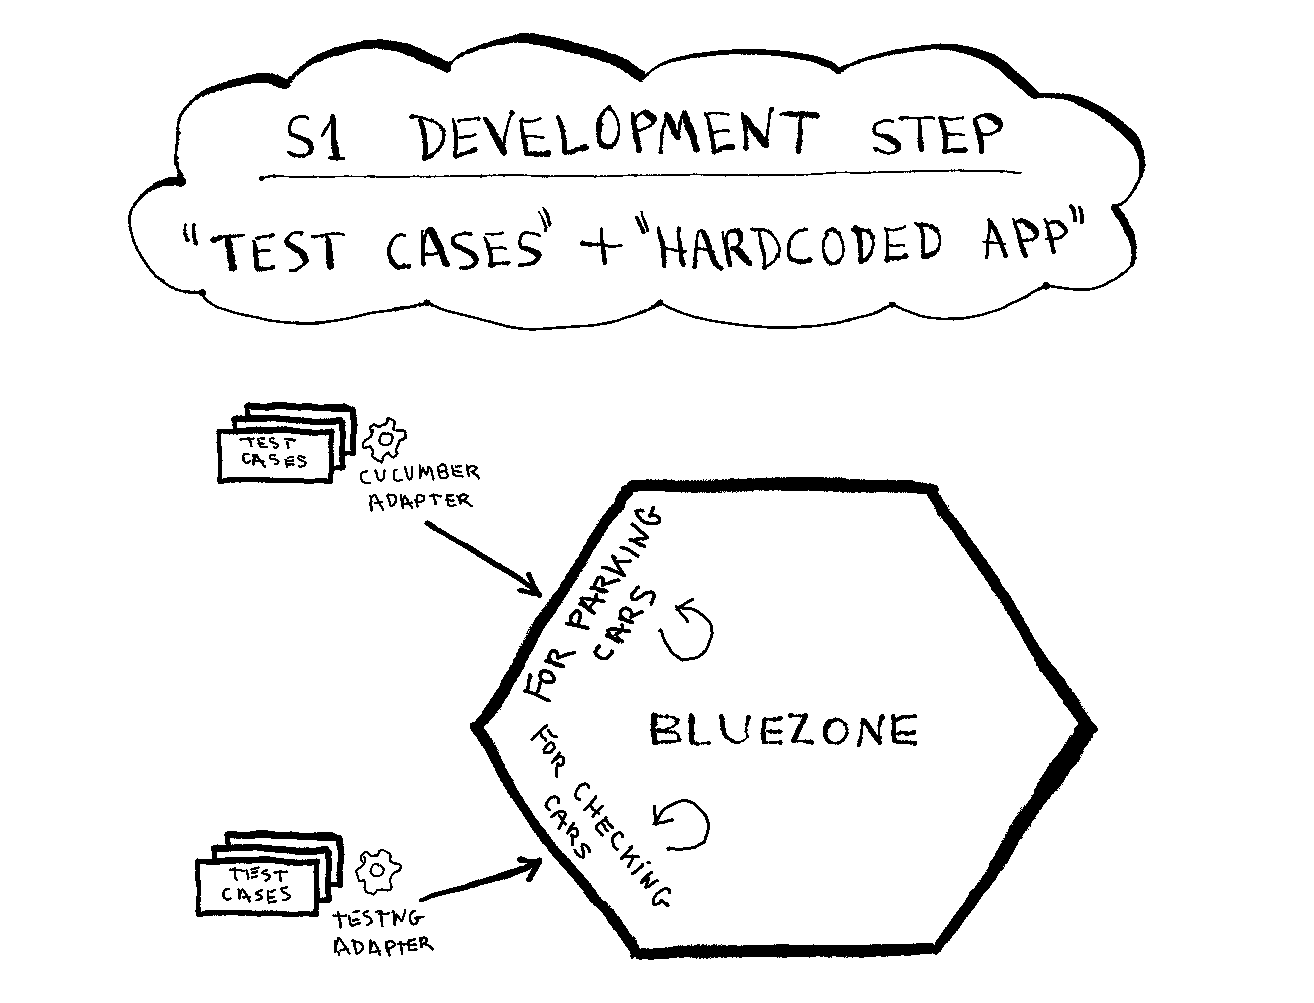 S1 DEVELOPMENT STEP
"TEST CASES" + "HARDCODED APP"
TEST
CASES
CUCUMBER
ADAPTER
FOR PARKING
CARS
BLUEZONE
FOR CHECKING
CARS
TEST
CASES
TESTNG
ADAPTER